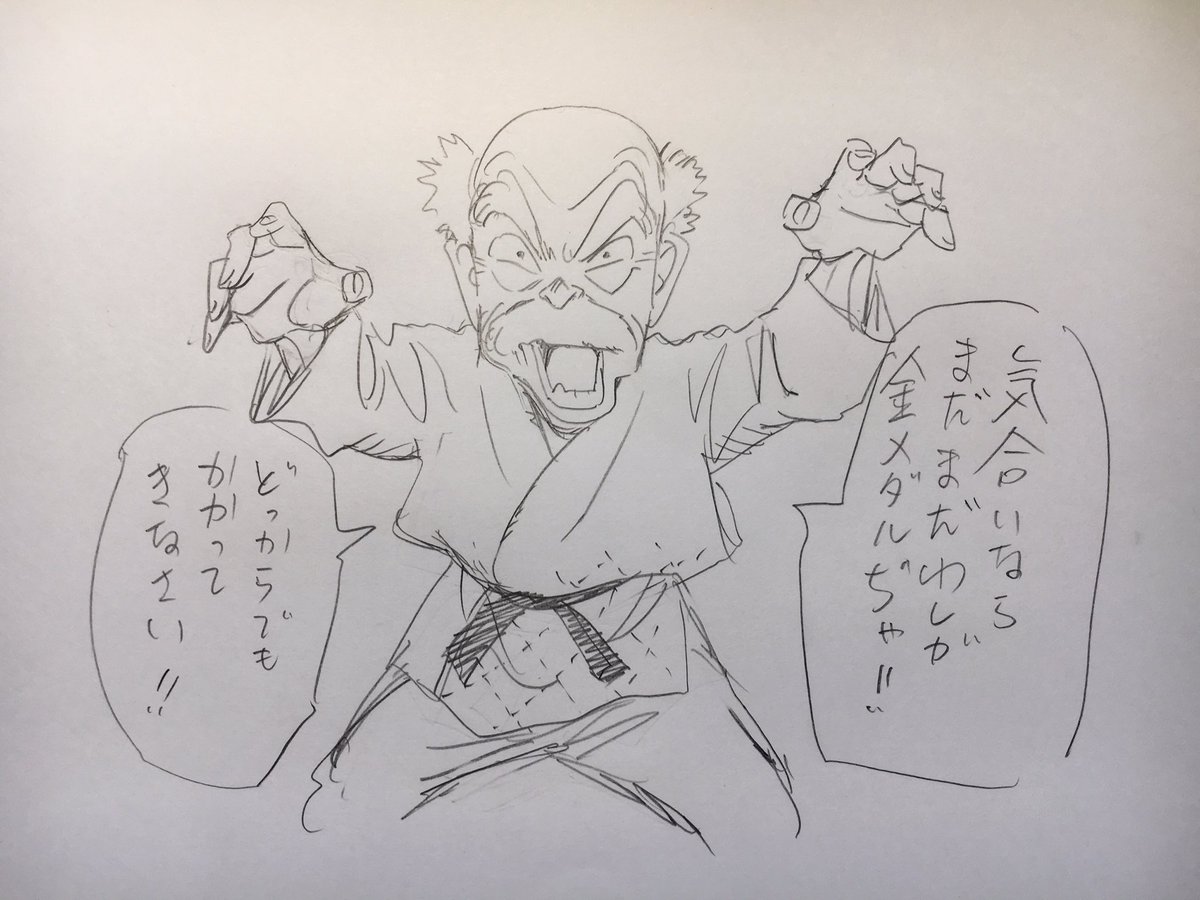 気合いなら
まだまだわしが
金メダルぢゃ!!
どっからでも
かかって
きなさい!!